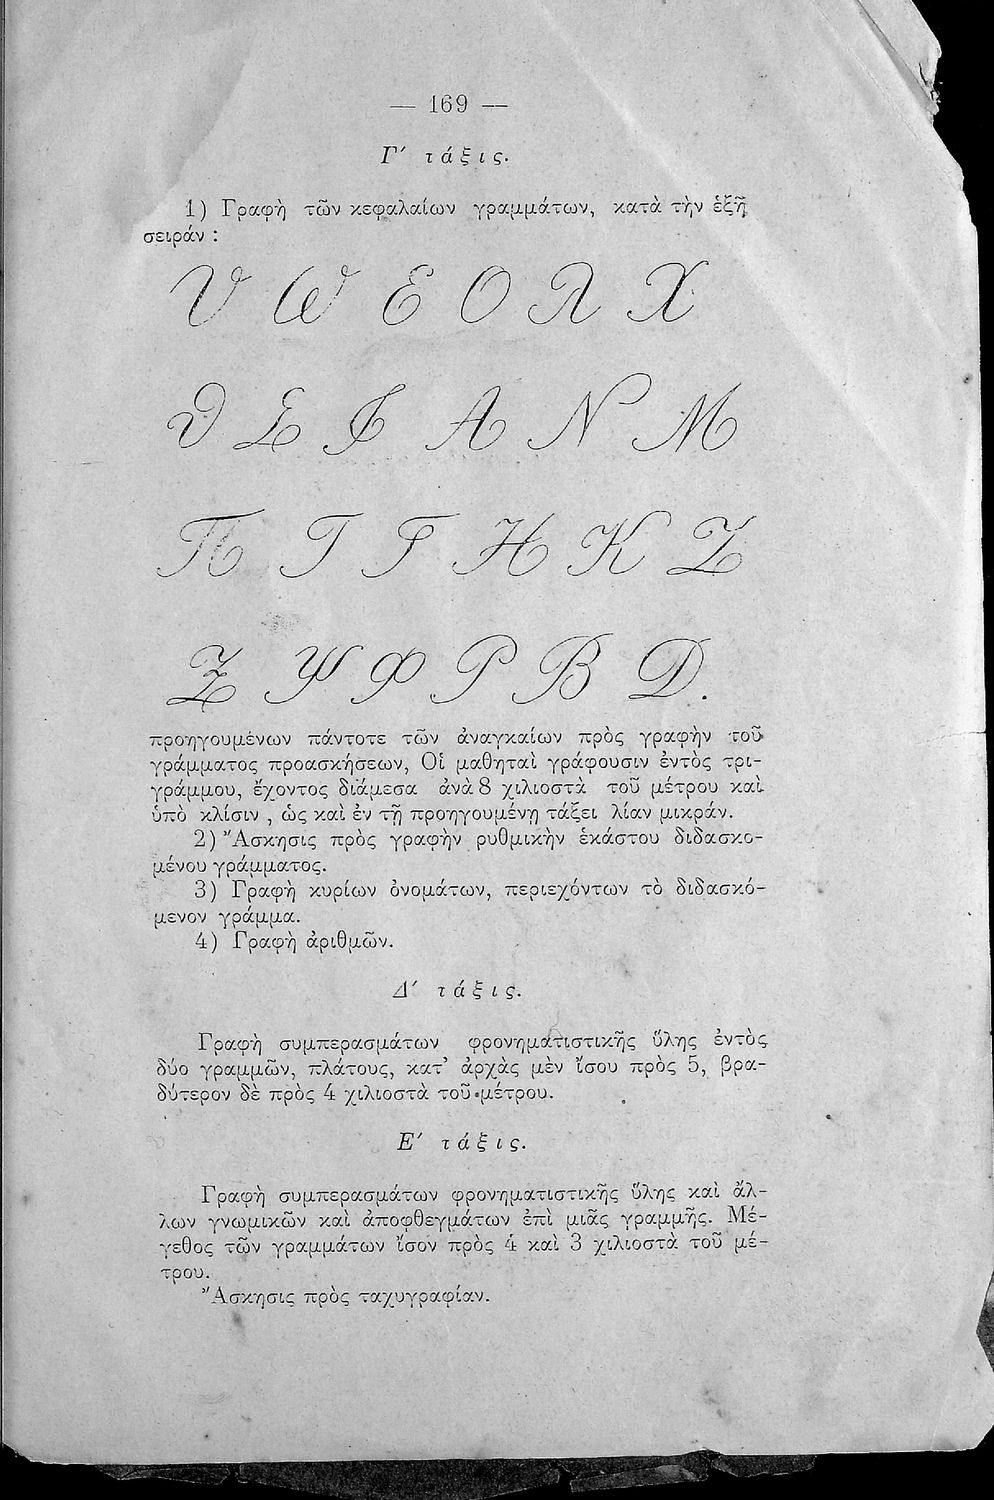 — 169 —
Γ′ τάξις.
1) Γραφὴ τῶν κεφαλαίων γραμμάτων, κατὰ τὴν ἑξῆ
σειράν :
U Ω Ε Ο Λ Χ
Θ Σ Ι Α Ν Μ
Π Τ Γ Η Κ Ζ
Ξ Ψ Φ Ρ Β D.
προηγουμένων πάντοτε τῶν ἀναγκαίων πρὸς γραφὴν τοῦ
γράμματος προασκήσεων, Οἱ μαθηταὶ γράφουσιν ἐντὸς τρι-
γράμμου, ἔχοντος διάμεσα ἀνὰ 8 χιλιοστὰ τοῦ μέτρου καὶ
ὑπὸ κλίσιν , ὡς καὶ ἐν τῇ προηγουμένῃ τάξει λίαν μικράν.
2) Ἄσκησις πρὸς γραφὴν ῥυθμικὴν ἑκάστου διδασκο-
μένου γράμματος.
3) Γραφὴ κυρίων ὀνομάτων, περιεχόντων τὸ διδασκό-
μενον γράμμα.
4) Γραφὴ ἀριθμῶν.
Δ′ τάξις.
Γραφὴ συμπερασμάτων φρονηματιστικῆς ὕλης ἐντὸς
δύο γραμμῶν, πλάτους, κατ' ἀρχὰς μὲν ἴσου πρὸς 5, βρα-
δύτερον δὲ πρὸς 4 χιλιοστὰ τοῦ μέτρου.
Ε′ τάξις.
Γραφὴ συμπερασμάτων φρονηματιστικῆς ὕλης καὶ ἄλ-
λων γνωμικῶν καὶ ἀποφθεγμάτων ἐπὶ μιᾶς γραμμῆς. Μέ-
γεθος τῶν γραμμάτων ἴσον πρὸς 4 καὶ 3 χιλιοστὰ τοῦ μέ-
τρου.
Ἄσκησις πρὸς ταχυγραφίαν.